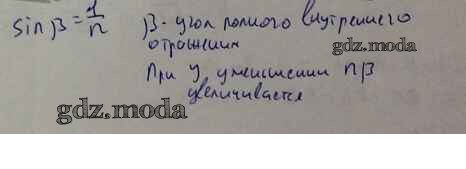 sin β = 1/n β - угол полного внутреннего
отражения
При у уменьшении n β
увеличивается
gdz.moda
gdz.moda